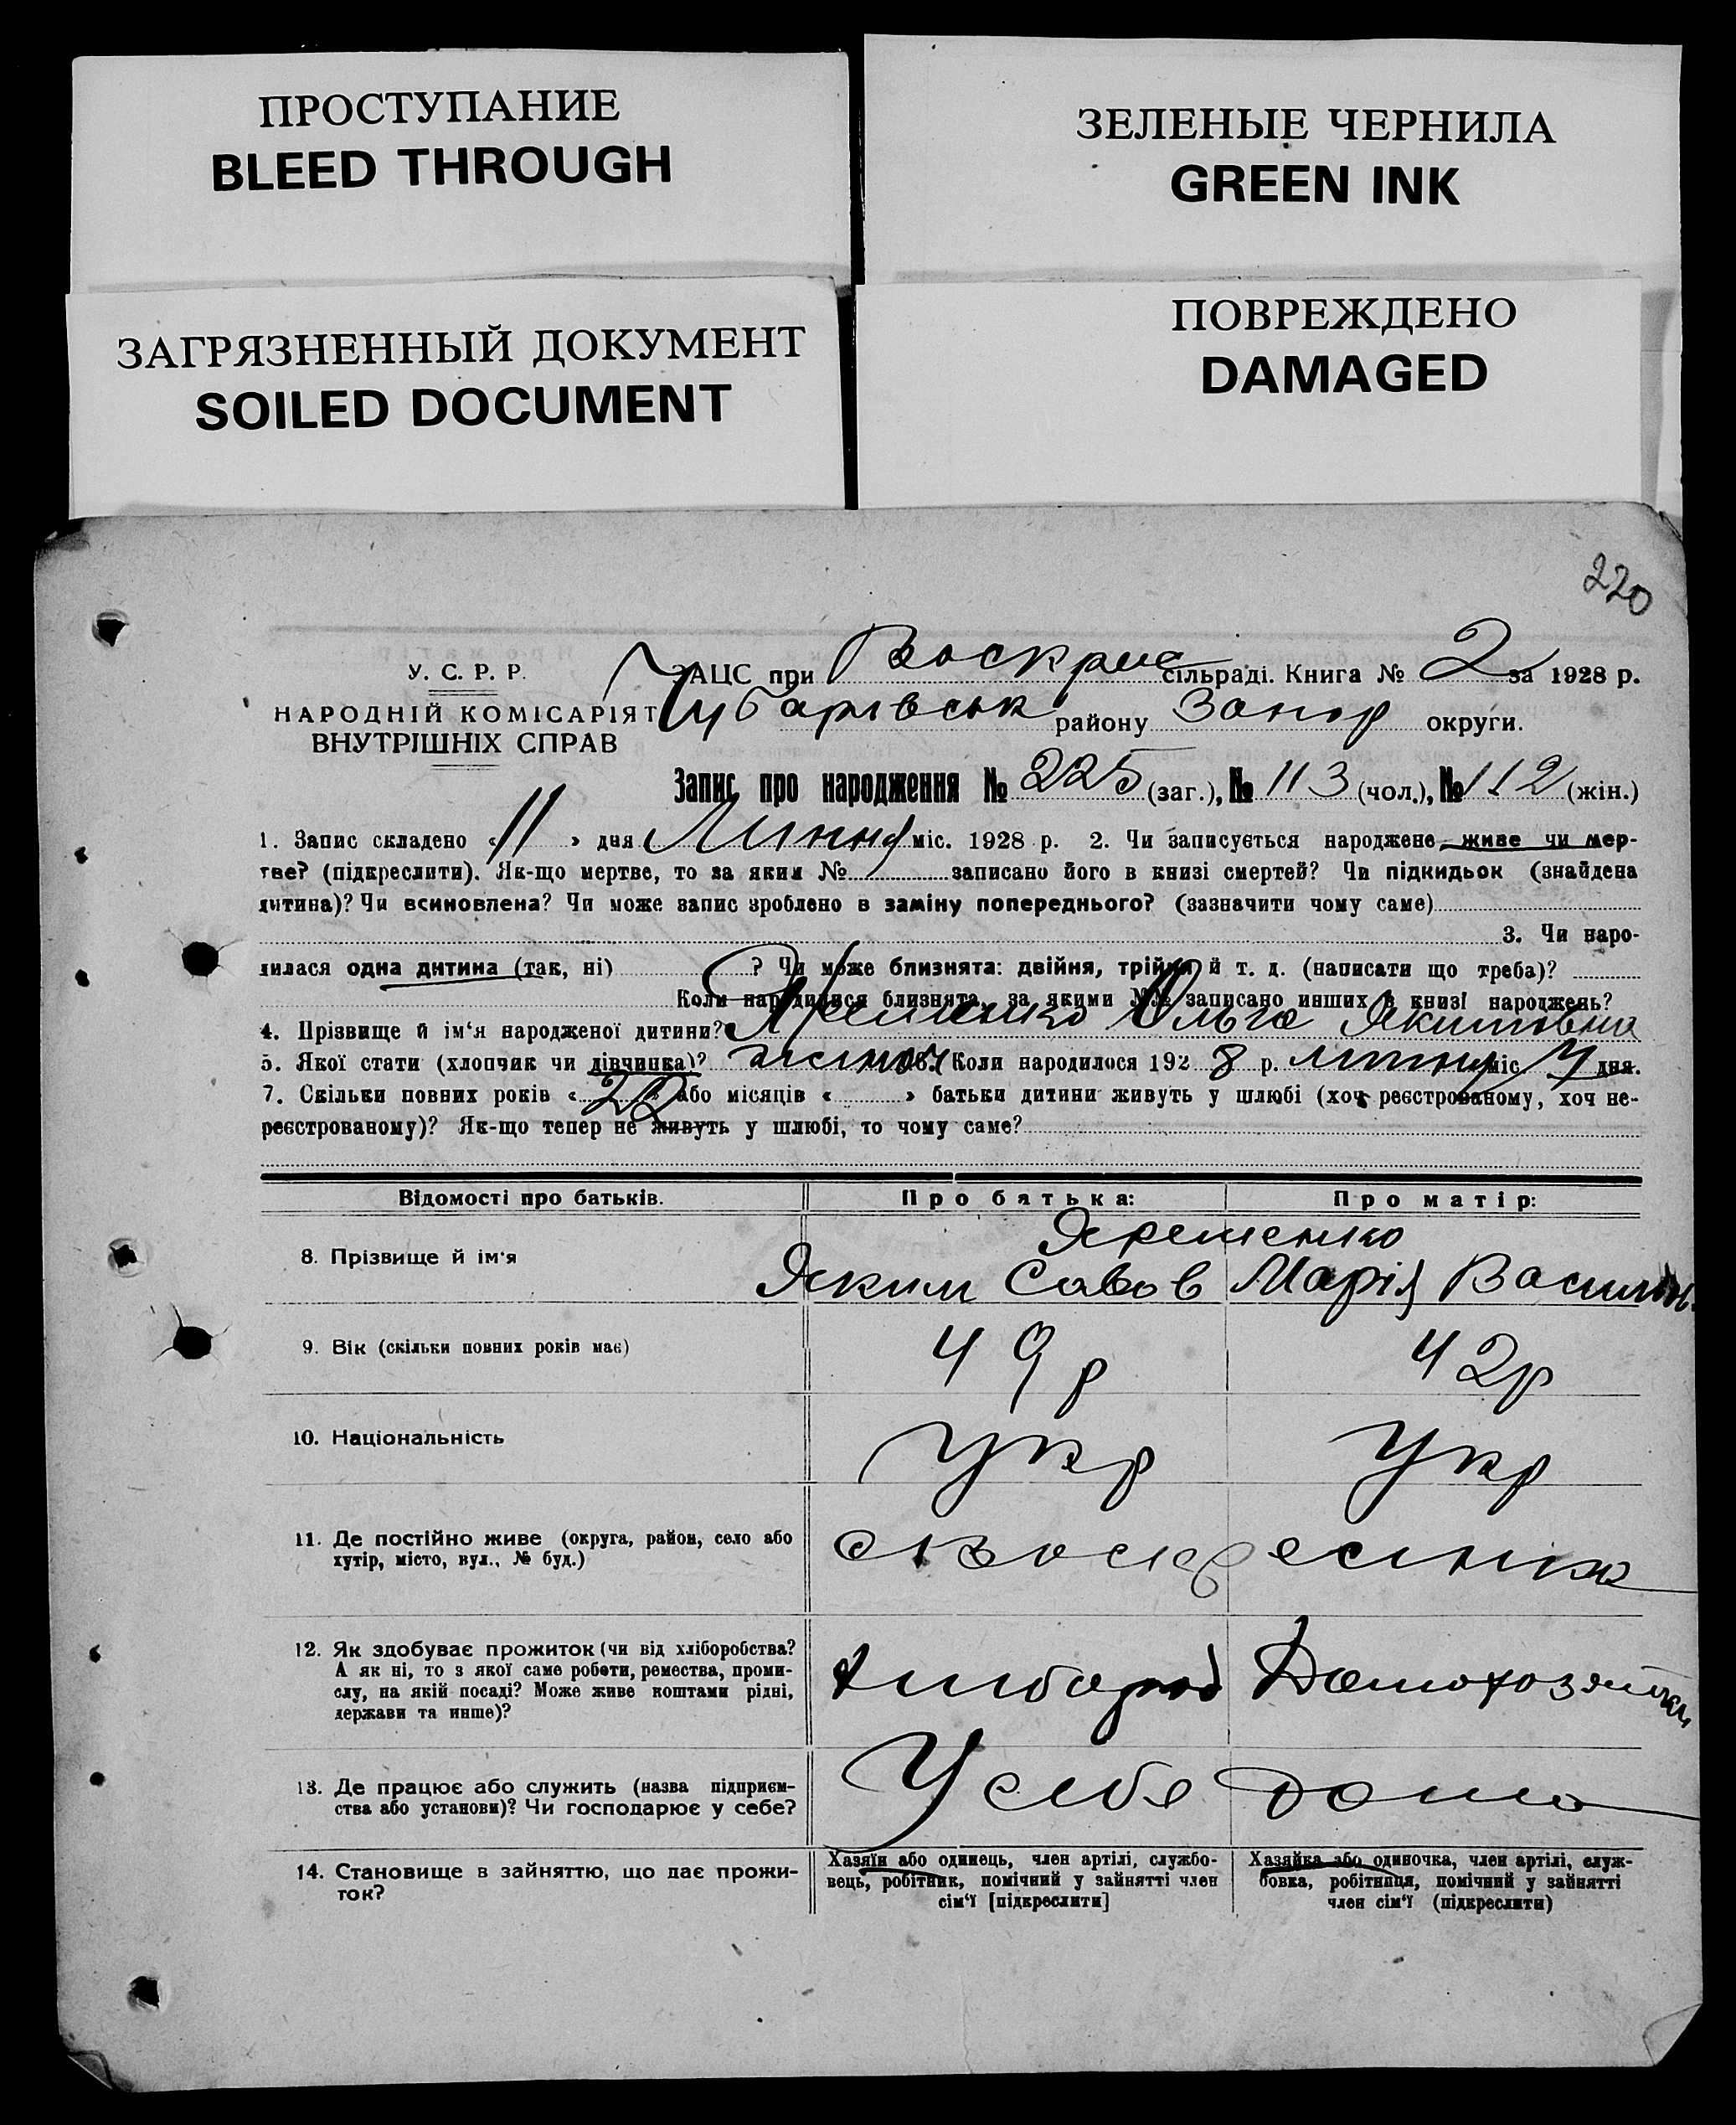 ПРОСТУПАНИЕ
BLEED THROUGH
ЗЕЛЕНЫЕ ЧЕРНИЛА
GREEN INK
ЗАГРЯЗНЕННЫЙ ДОКУМЕНТ
SOILED DOCUMENT
ПОВРЕЖДЕНО
DAMAGED
220
У. С. Р. Р.
НАРОДНІЙ КОМІСАРІЯТ
ВНУТРІШНІХ СПРАВ
ЗАЦС при Воскрес сільраді. Книга № 2 за 1928 р.
Чубарівськ району Запор округи.
Запис про народження № 225 (заг.), № 113 (чол.), № 112 (жін.)
1. Запис складено «11» дня Липня міс. 1928 р. 2. Чи записується народжене живе чи мер-
тве? (підкреслити). Як-що мертве, то за яким № записано його в книзі смертей? Чи підкидьок (знайдена
дитина)? Чи всиновлена? Чи може запис зроблено в заміну попереднього? (зазначити чому саме)
3. Чи наро-
дилася одна дитина (так, ні) ? Чи може близнята: двійня, трійня й т. д. (написати що треба)?
Коли народилися близнята, за якими №№ записано инших в книзі народжень?
4. Прізвище й ім‘я народженої дитини? Яременко Ольга Якимовна
5. Якої стати (хлопчик чи дівчинка)? 6. Коли народилося 1928 р. липня міс. 7 дня.
7. Скільки повних років «22» або місяців « » батьки дитини живуть у шлюбі (хоч реєстрованому, хоч не-
реєстрованому)? Як-що тепер не живуть у шлюбі, то чому саме?
Відомості про батьків. Про батька: Про матір:
Яременко
8. Прізвище й ім‘я Яким Савов Марія Васильов.
9. Вік (скільки повних років має) 49 р 42 р
10. Національність Укр Укр
11. Де постійно живе (округа, район, село або
хутір, місто, вул., № буд.)
12. Як здобуває прожиток (чи від хліборобства?
А як ні, то з якої саме роботи, ремества, проми-
слу, на якій посаді? Може живе коштами рідні,
держави та инше)?
Хлібороб Домохозяйка
13. Де працює або служить (назва підприєм-
ства або установи)? Чи господарює у себе?
У себе дома
14. Становище в зайняттю, що дає прожи-
ток?
Хазяїн або одинець, член артілі, службо-
вець, робітник, помічний у зайнятті член
сім‘ї [підкреслити]
Хазяйка або одиночка, член артілі, служ-
бовка, робітниця, помічний у зайнятті
член сім‘ї (підкреслити)